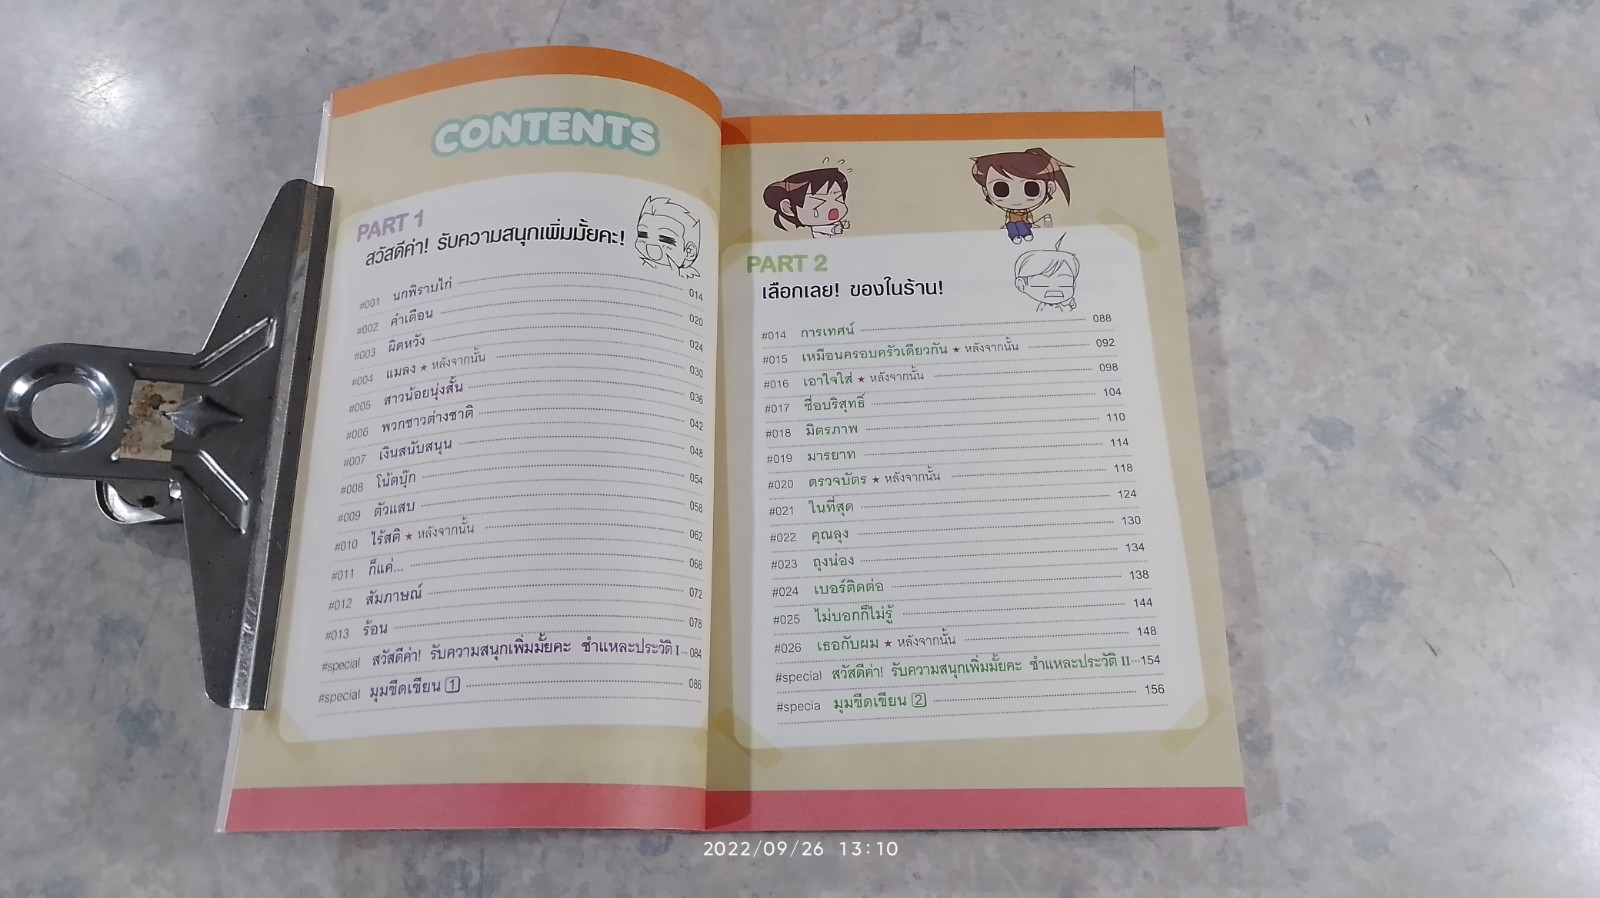 CONTENTS
PART 1
สวัสดีค่า! รับความสนุกเพิ่มมั้ยคะ!
#001 นกพิราบไก่ 014
#002 คำเตือน 020
#003 ผิดหวัง 024
#004 แมลง ★ หลังจากนั้น 030
#005 สาวน้อยนุ่งสั้น 036
#006 พวกชาวต่างชาติ 042
#007 เงินสนับสนุน 048
#008 โน้ตบุ๊ก 054
#009 ตัวแสบ 058
#010 ไร้สติ ★ หลังจากนั้น 062
#011 ก็แค่... 068
#012 สัมภาษณ์ 072
#013 ร้อน 078
#special สวัสดีค่า! รับความสนุกเพิ่มมั้ยคะ ชำแหละประวัติ I 084
#special มุมขีดเขียน 1 086
PART 2
เลือกเลย! ของในร้าน!
#014 การเทศน์ 088
#015 เหมือนครอบครัวเดียวกัน ★ หลังจากนั้น 092
#016 เอาใจใส่ ★ หลังจากนั้น 098
#017 ซื่อบริสุทธิ์ 104
#018 มิตรภาพ 110
#019 มารยาท 114
#020 ตรวจบัตร ★ หลังจากนั้น 118
#021 ในที่สุด 124
#022 คุณลุง 130
#023 ถุงน่อง 134
#024 เบอร์ติดต่อ 138
#025 ไม่บอกก็ไม่รู้ 144
#026 เธอกับผม ★ หลังจากนั้น 148
#special สวัสดีค่า! รับความสนุกเพิ่มมั้ยคะ ชำแหละประวัติ II 154
#specia มุมขีดเขียน 2 156
2022/09/26 13:10